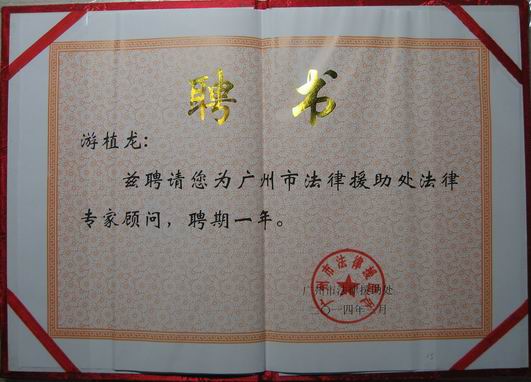 聘书
游植龙:
兹聘请您为广州市法律援助处法律
专家顾问，聘期一年。
广州市法律援助处
广州市法律援助处
二〇一四年 月
15